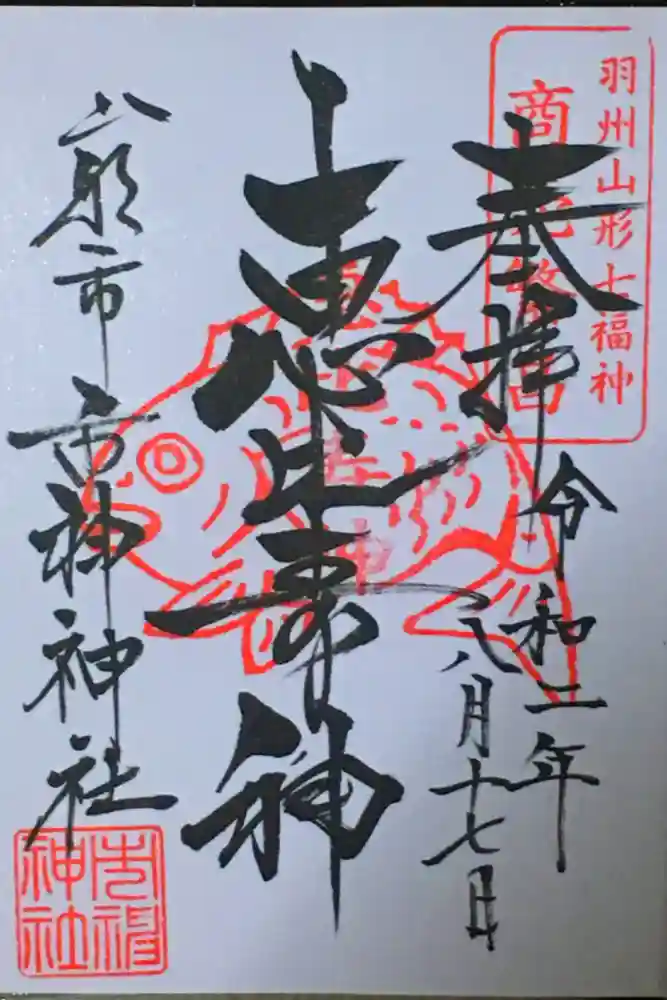 羽州山形七福神
商売繁昌
奉拝
令和二年
八月十七日
恵比寿神
市神神社
市神
神社